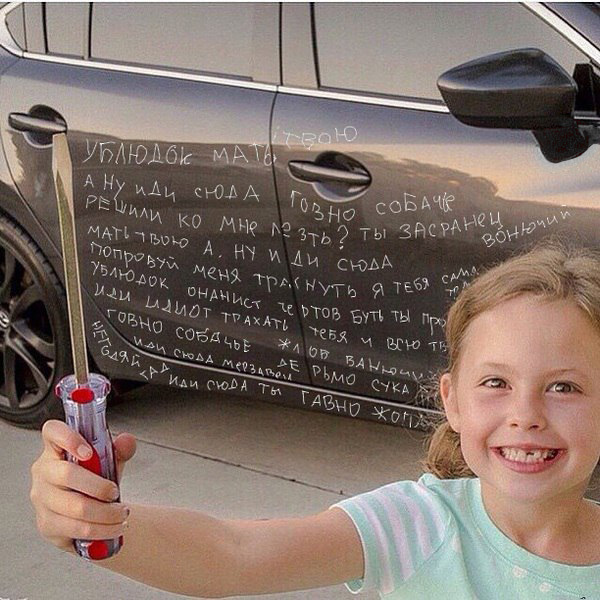 УБЛЮДОК МАТЬ ТВОЮ
А НУ ИДИ СЮДА ГОВНО СОБАЧЕ
РЕШИЛИ КО МНЕ ЛЕЗТЬ? ТЫ ЗАСРАНЕЦ ВОНЮЧИЙ
МАТЬ ТВОЮ А. НУ И ДИ СЮДА
ПОПРОБУЙ МЕНЯ ТРАХНУТЬ Я ТЕБЯ САМА
УБЛЮДОК ОНАНИСТ ЧЕРТОВ БУТЬ ТЫ ПРО
ИДИ ИДИОТ ТРАХАТЬ ТЕБЯ И ВСЮ ТВ
ГОВНО СОБАЧЬЕ ЖЛОБ ВАНЮЧИЙ
ИДИ СЮДА ДЕРЬМО СУКА
НЕГОДЯЙ ГАД ИДИ СЮДА ТЫ ГАВНО